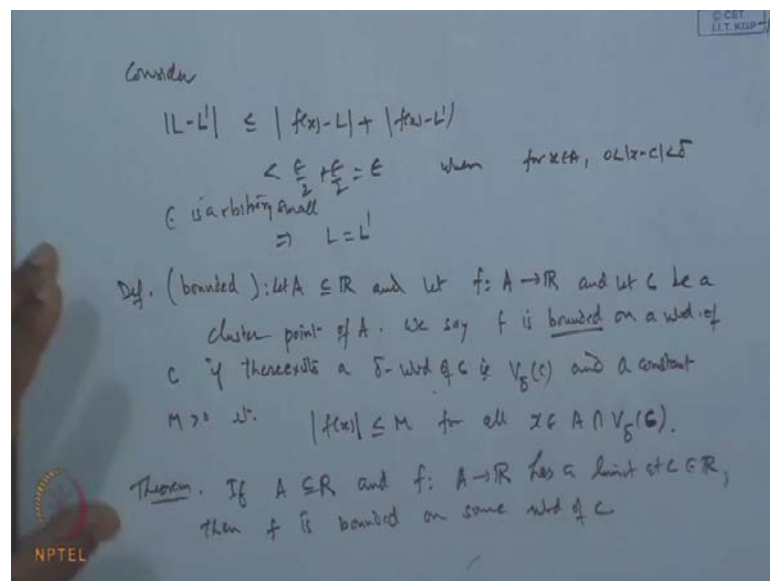 © CET
I.I.T. KGP
Consider
|L-L'| ≤ |f(x)-L| + |f(x)-L'|
< ε/2 + ε/2 = ε when for x∈A, 0<|x-c|<δ
ε is arbitrary small
⇒ L = L'
Def. (bounded): Let A ⊆ ℝ and let f: A→ℝ and let c be a
cluster point of A. We say f is bounded on a nbd of
c if there exists a δ-nbd of c is V_δ(c) and a constant
M>0 s.t. |f(x)| ≤ M for all x∈ A ∩ V_δ(c).
Theorem. If A ⊆ ℝ and f: A→ℝ has a limit at c ∈ ℝ,
then f is bounded on some nbd of c
NPTEL